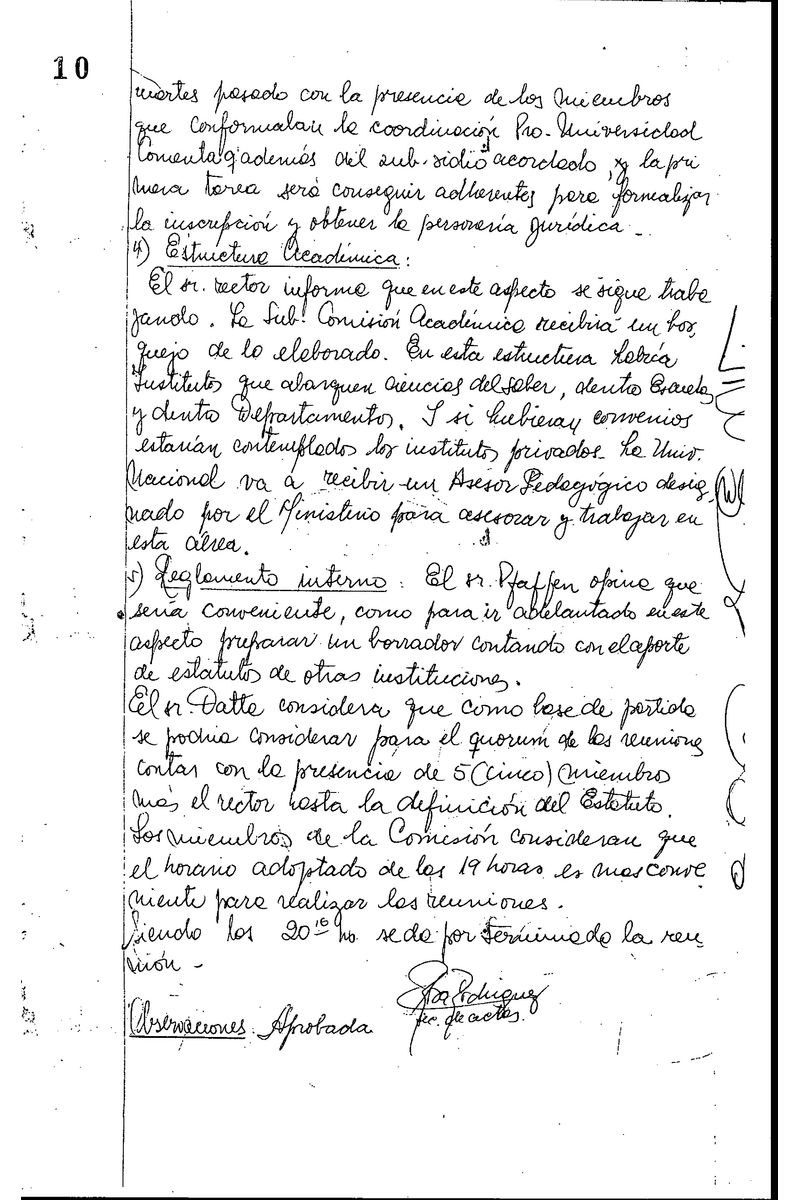 10
martes pasado con la presencia de los miembros
que conformaban la coordinación Pro-Universidad
Comenta q' además del sub-sidio acordado, y la pri
mera tarea será conseguir adherentes para formalizar
la inscripción y obtener la personería Jurídica -
4) Estructura Académica:
El sr. rector informa que en este aspecto se sigue traba
jando. La Sub. Comisión Académica recibirá un bos,
quejo de lo elaborado. En esta estructura habría
Institutos que abarquen ciencias del saber, dentro Escuelas
y dentro Departamentos. Y si hubieran convenios
estarían contemplados los institutos privados. La Univ.
Nacional va a recibir un Asesor Pedagógico desig
nado por el Ministerio para asesorar y trabajar en
esta área.
5) Reglamento interno: El sr. Pfaffen opina que
sería conveniente, como para ir adelantado en este
aspecto preparar un borrador contando con el aporte
de estatutos de otras instituciones.
El sr. Datta considera que como base de partida
se podría considerar para el quorum de las reuniones
contar con la presencia de 5 (cinco) miembros
más el rector hasta la definición del Estatuto.
Los miembros de la Comisión consideran que
el horario adoptado de las 19 horas es mas conve
niente para realizar las reuniones.
Siendo las 20 16 hs. se da por terminada la reu
nión -
Rodriguez
sec. de actas.
Observaciones: Aprobada